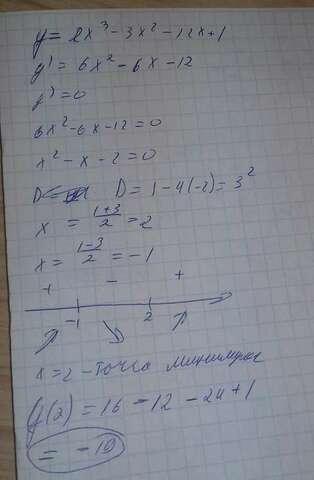 y = 2x³ - 3x² - 12x + 1
y' = 6x² - 6x - 12
y' = 0
6x² - 6x - 12 = 0
x² - x - 2 = 0
D = 1 - 4(-2) = 3²
x = (1+3)/2 = 2
x = (1-3)/2 = -1
+ - +
-1 2
x = 2 - точка минимума
y(2) = 16 - 12 - 24 + 1
= -19